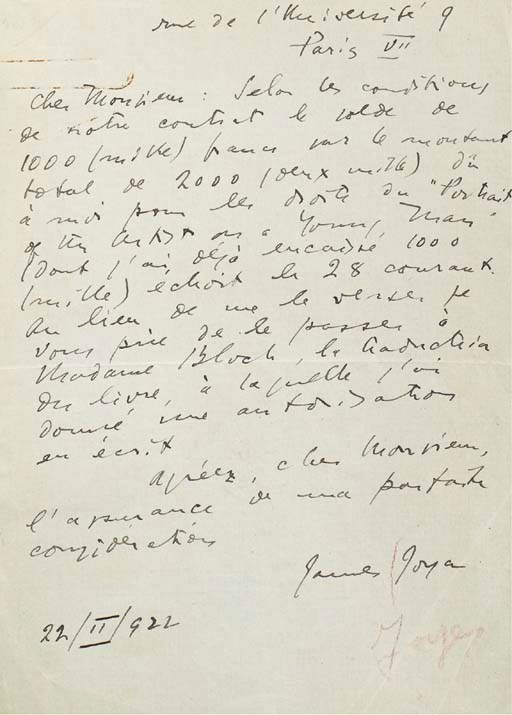 rue de l'Université 9
Paris VII
Cher Monsieur : Selon les conditions
de notre contrat le solde de
1000 (mille) francs sur le montant
total de 2000 (deux mille) dû
à moi pour les droits du "Portrait
of the Artist as a Young Man"
(dont j'ai déjà encaissé 1000
(mille) échoit le 28 courant.
Au lieu de me le verser je
vous prie de le passer à
Madame Bloch, la traductrice
du livre, à laquelle j'ai
donné une autorisation
en écrit
Agréez, cher Monsieur,
l'assurance de ma parfaite
considération
James Joyce
22/II/922
Joyce